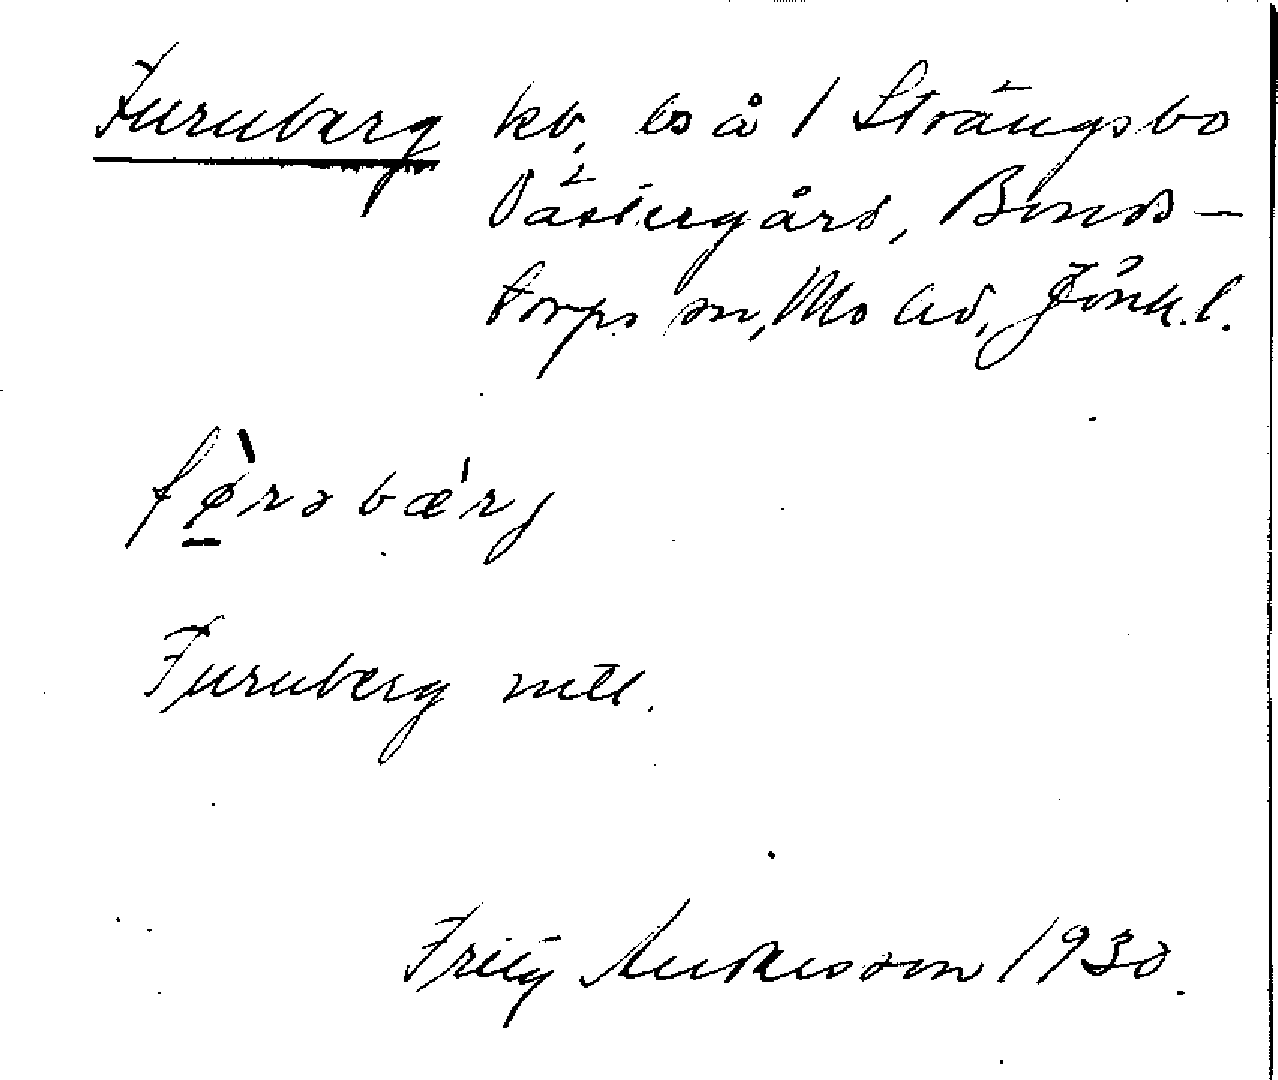 Furuberg kb, ls å 1 Strängsbo
Västergård, Bonds-
torps sn, Mo hd, Jönk. l.
fø̀rəbǽrj
Furuberg mtl.
Fritz Andersson 1930.